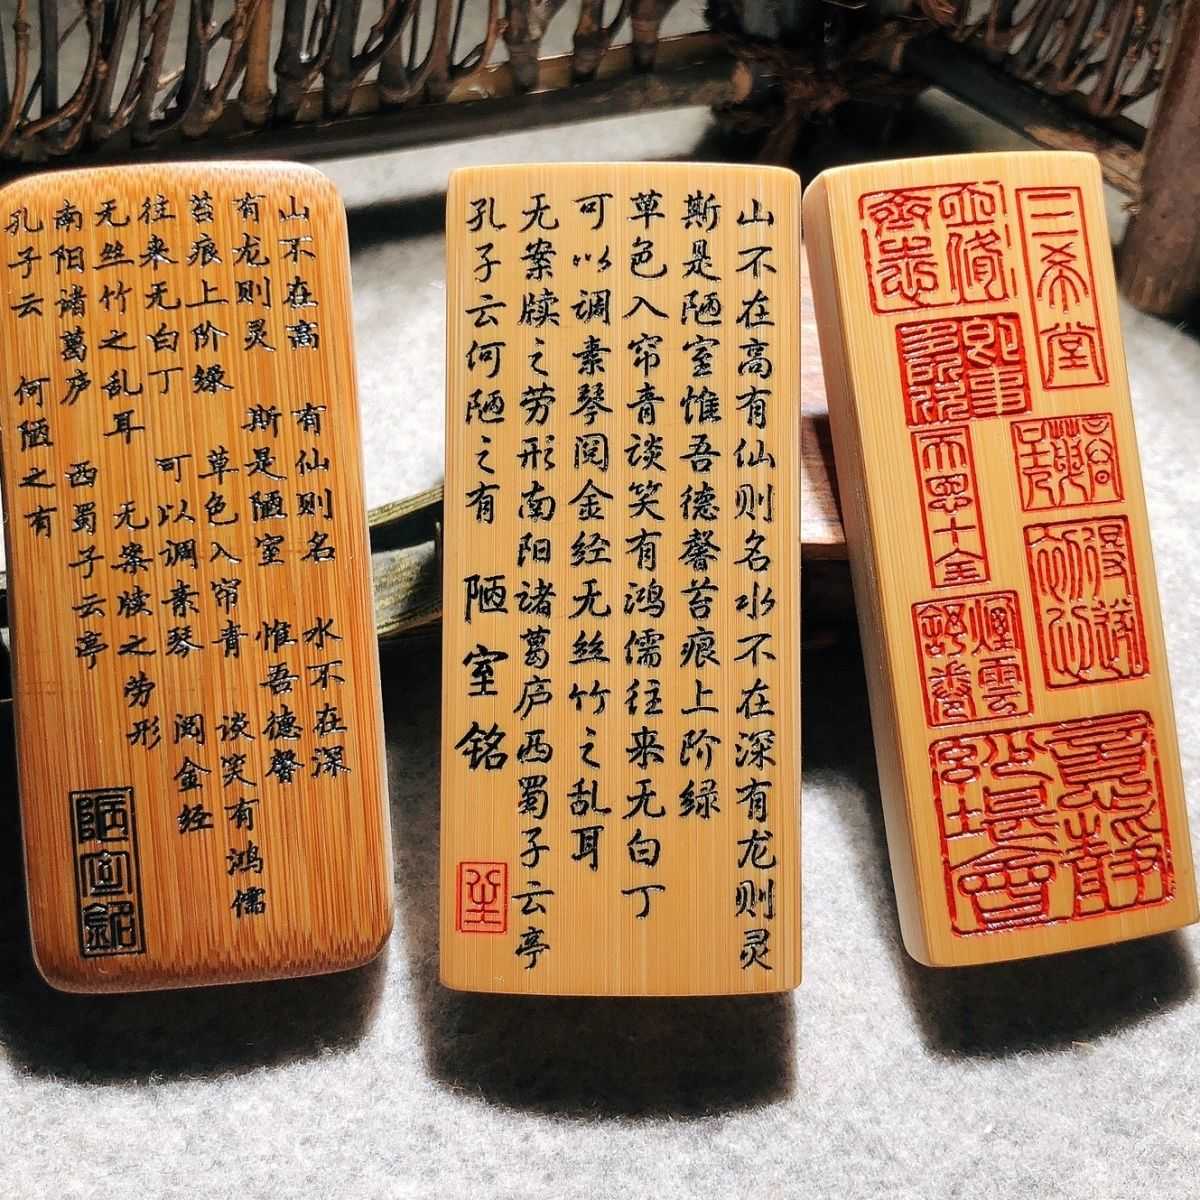 山不在高 有仙则名 水不在深
有龙则灵 斯是陋室 惟吾德馨
苔痕上阶绿 草色入帘青 谈笑有鸿儒
往来无白丁 可以调素琴 阅金经
无丝竹之乱耳 无案牍之劳形
南阳诸葛庐 西蜀子云亭
孔子云 何陋之有
陋室铭
山不在高有仙则名水不在深有龙则灵
斯是陋室惟吾德馨苔痕上阶绿
草色入帘青谈笑有鸿儒往来无白丁
可以调素琴阅金经无丝竹之乱耳
无案牍之劳形南阳诸葛庐西蜀子云亭
孔子云何陋之有 陋室铭
三希堂
即事多所欣
煙雲舒卷
意静妙堪會